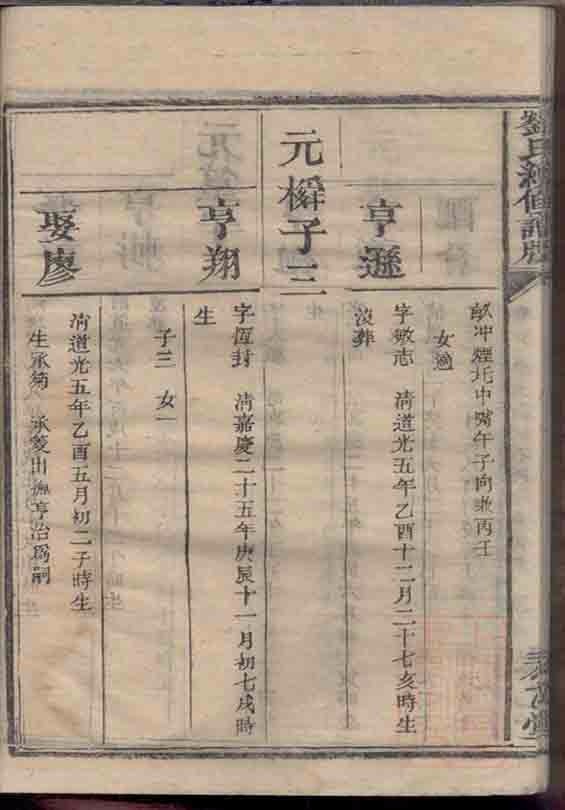 劉氏續修譜
冲煙圫中嘴午子向兼丙壬
女適
亨遜
字敏志 清道光五年乙酉十二月二十七亥時生
沒葬
元橓子三
亨翔
字恆封 清嘉慶二十五年庚辰十一月初七戌時
生
子三 女一
娶廖
清道光五年乙酉五月初二子時生
生承菊 承菱出撫亨治爲嗣